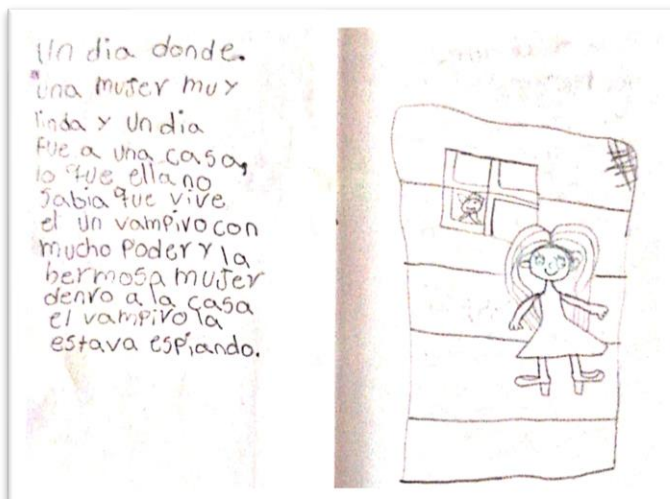 Un dia donde.
una mujer muy
linda y un dia
fue a una casa,
lo que ella no
sabia que vive
el un vampiro con
mucho poder y la
hermosa mujer
denro a la casa
el vampiro la
estava espiando.